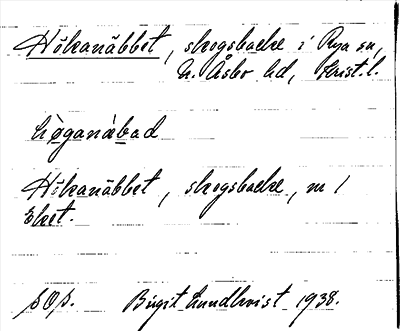 Hökanäbbet, skogsbacke i Rya sn,
N. Åsbo hd, Krist. l.
höganäbad
Hökanäbbet, skogsbacke, m /
Eket.
Birgit Lundkvist 1938.